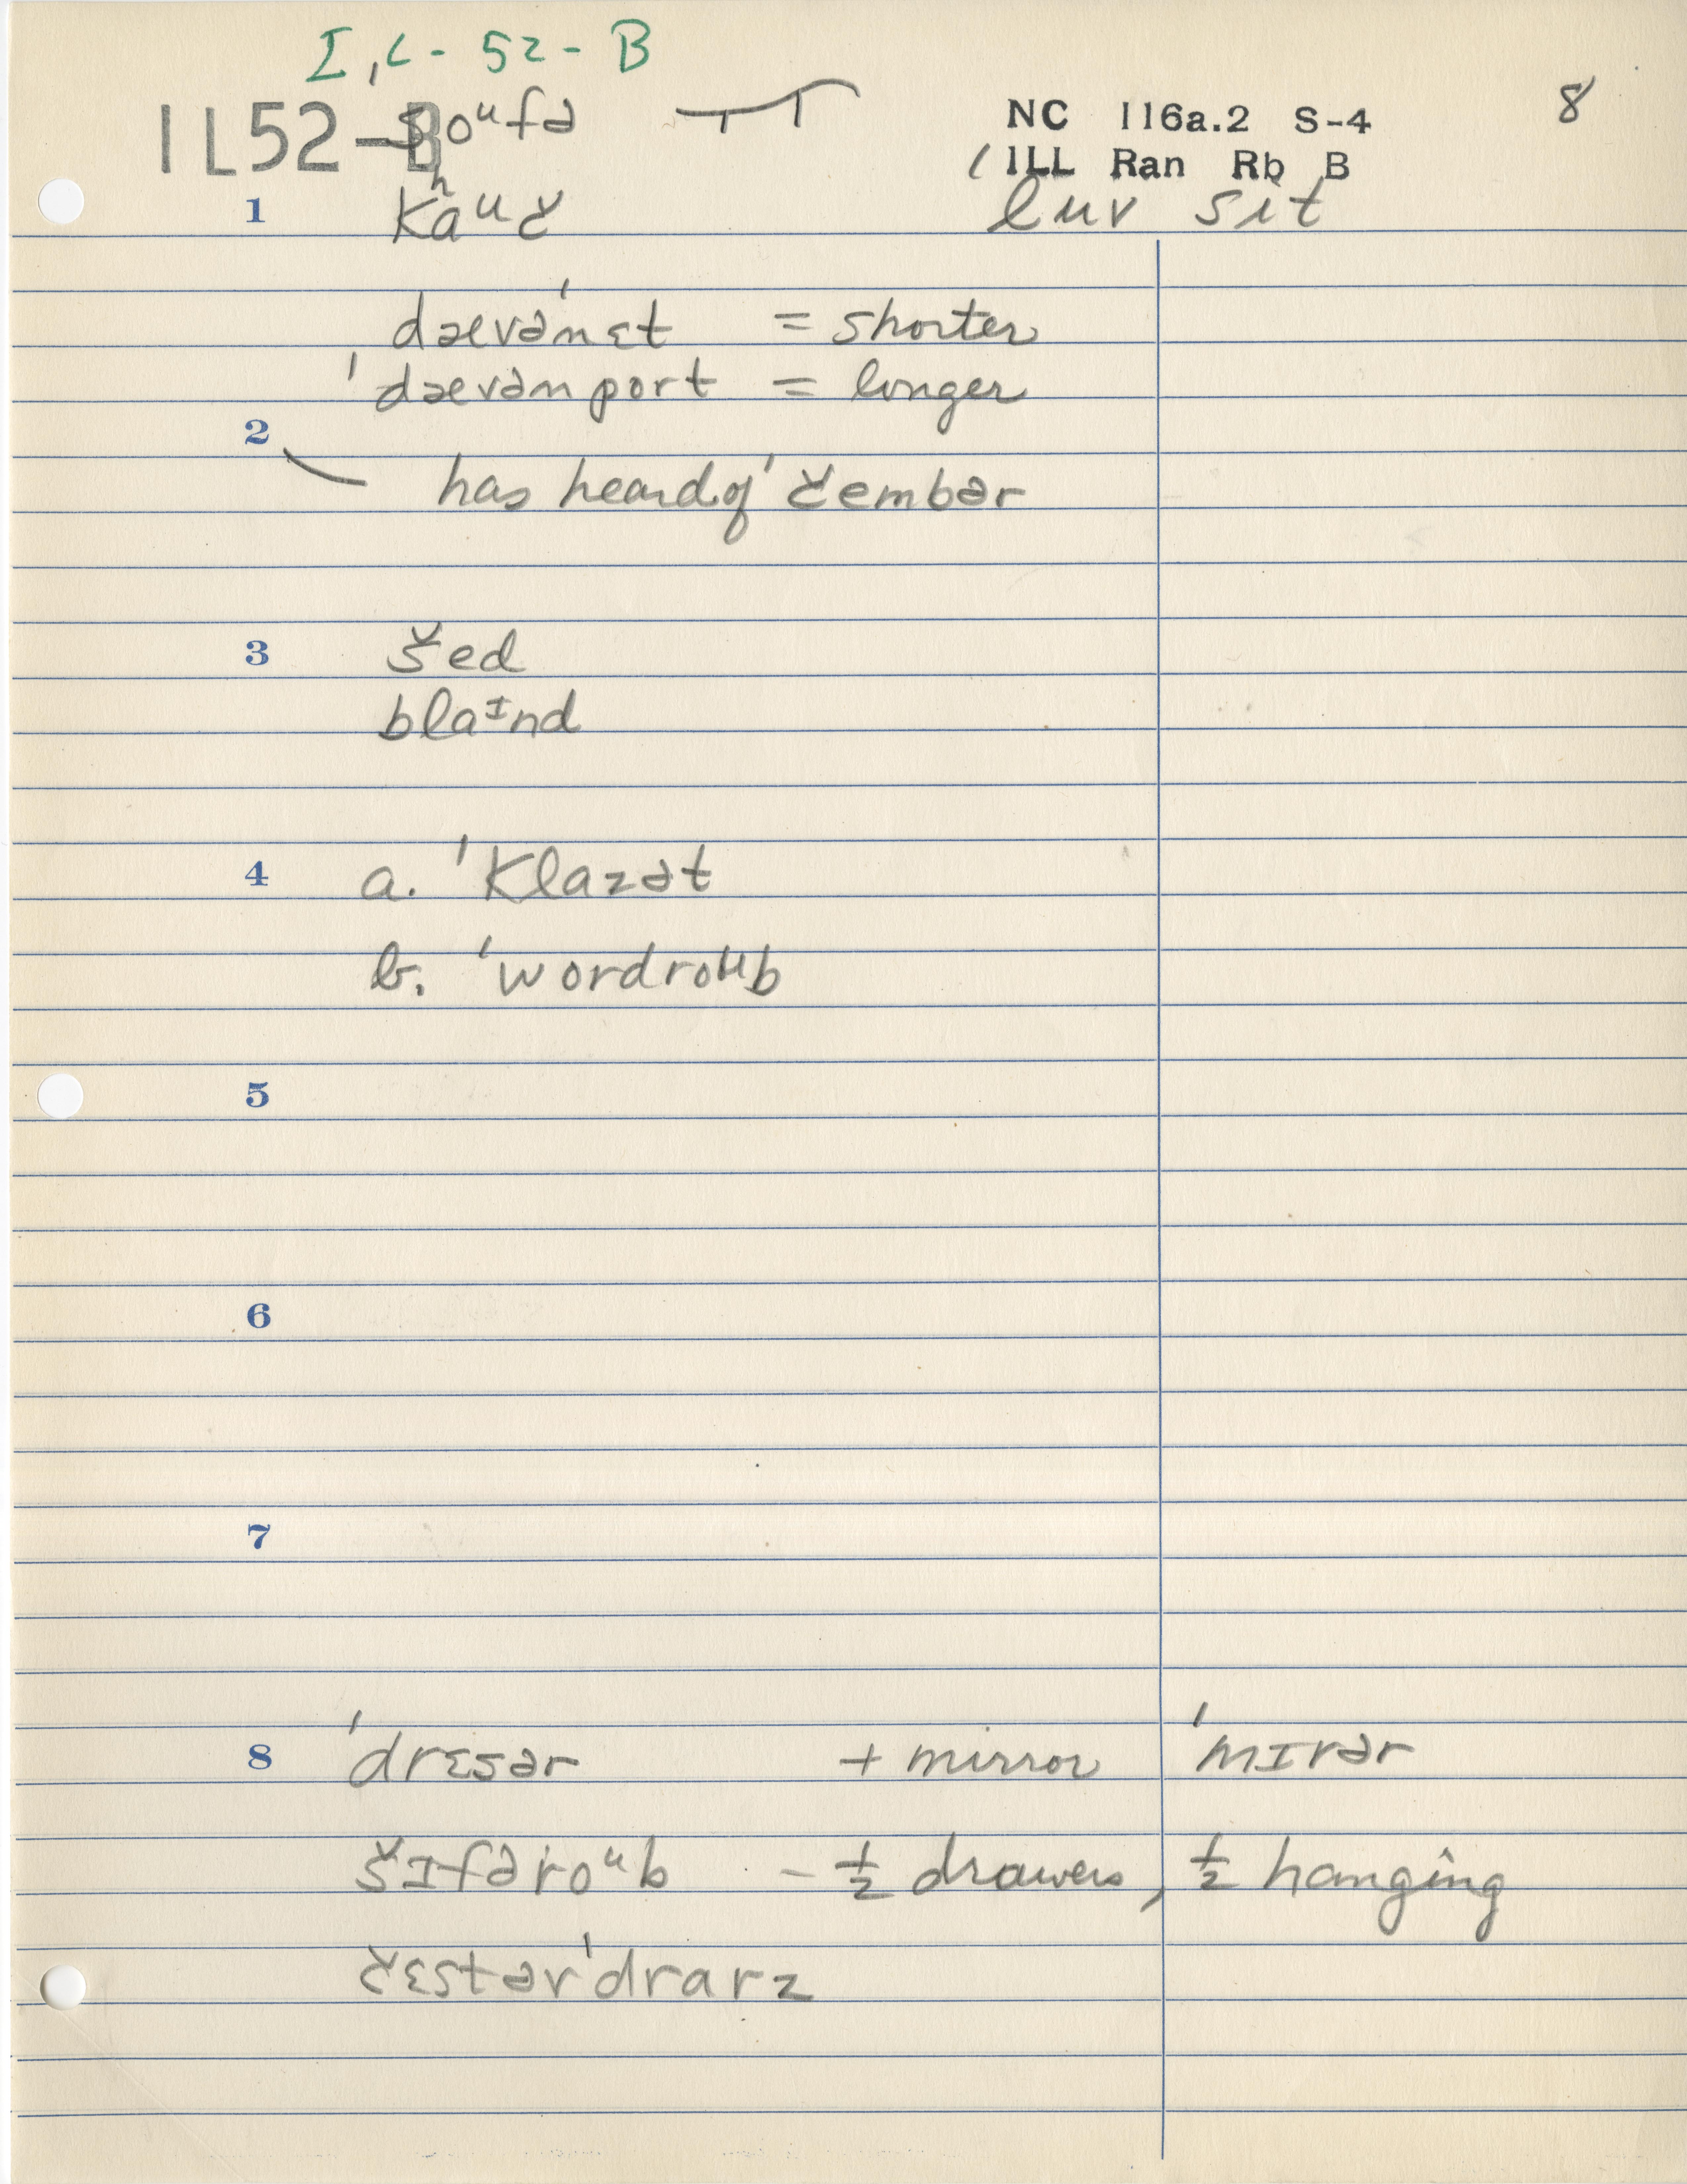 IL-52-B
IL52-B soᵘfə NC 116a.2 S-4 8
ILL Ran Rb B
1 kʰaᵘč luv sit
dævə'nɛt = shorter
'dævənport = longer
2
has heard of 'čembər
3 šed
blaᶦnd
4 a. 'klazət
b. 'wordroᵘb
5
6
7
8 'drɛsər + mirror 'mɪrər
šɪfəroᵘb - ½ drawers, ½ hanging
čɛstər'drarz